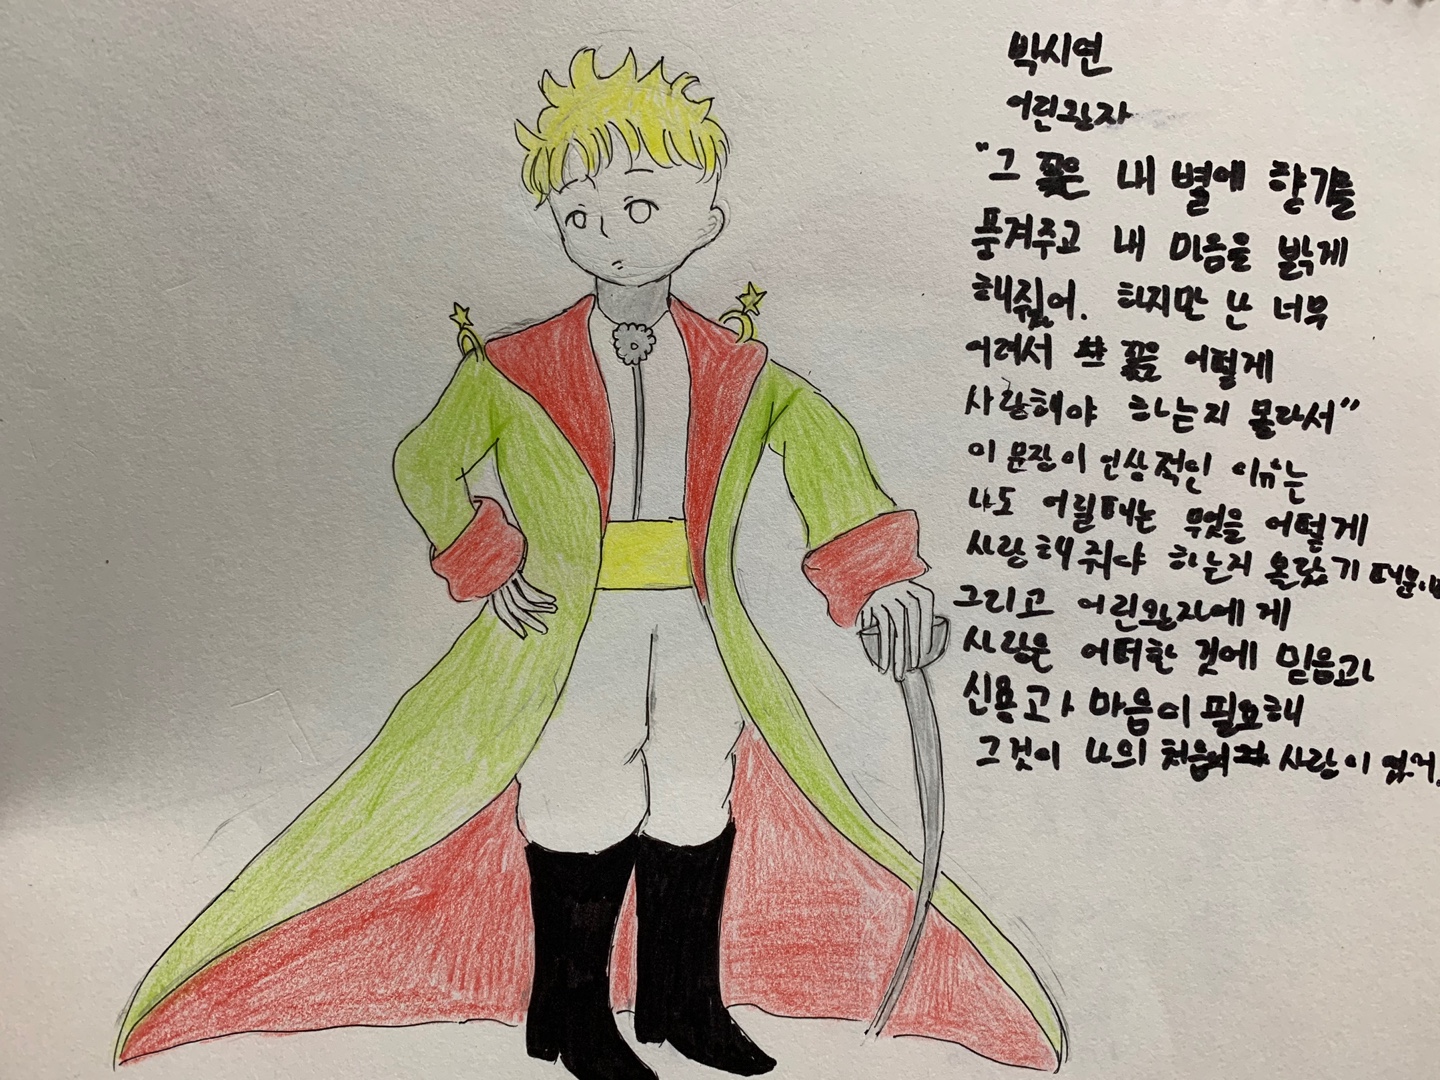 박시연
어린왕자
"그 꽃은 내 별에 향기를
풍겨주고 내 마음을 밝게
해줬어. 하지만 난 너무
어려서 그 꽃을 어떻게
사랑해야 하는지 몰라서"
이 문장이 인상적인 이유는
나도 어릴때는 무엇을 어떻게
사랑해줘야 하는지 몰랐기
그리고 어린왕자에게
사랑은 어떠한 것에 믿음과
신용과 마음이 필요해
그것이 나의 사랑이